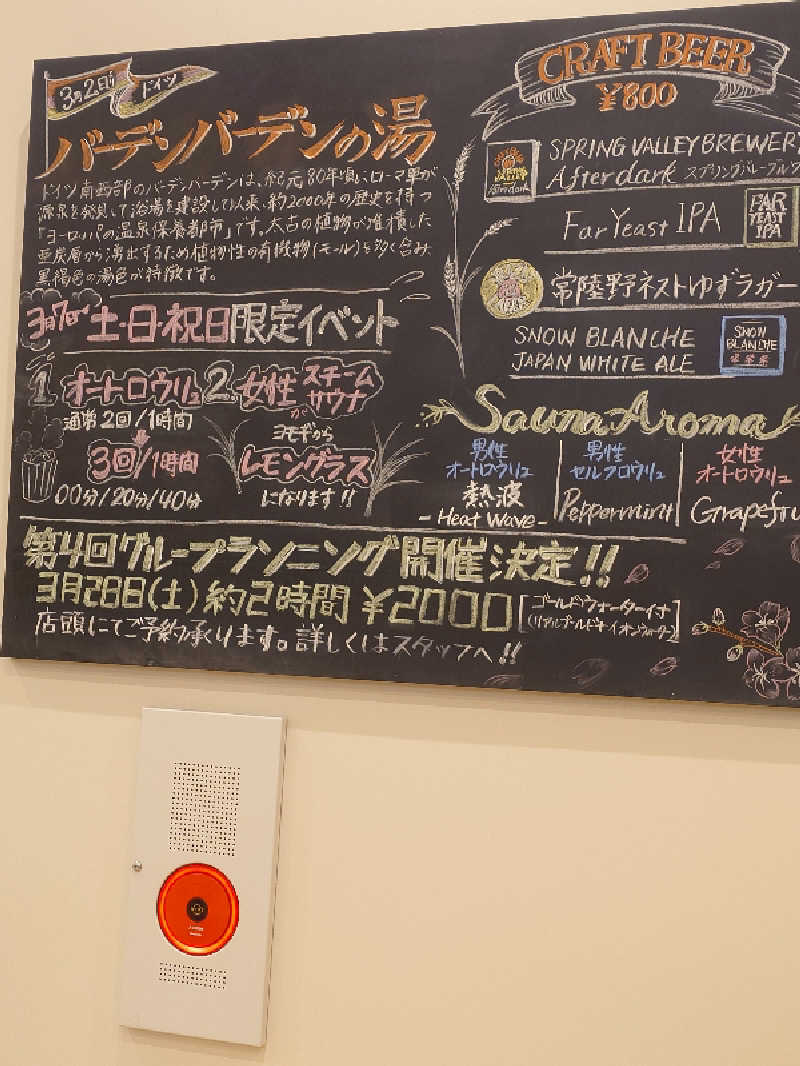 3月2日〜 ドイツ
バーデンバーデンの湯
ドイツ南西部のバーデンバーデンは、紀元80年頃にローマ軍が
源泉を発見して浴場を建設して以来、約2000年の歴史を持つ
「ヨーロッパの温泉保養都市」です。太古の植物が堆積した
亜炭層から湧出するため植物性の有機物(モール)を多く含み
黒褐色の湯色が特徴です。
3月7日〜 土・日・祝日限定イベント
1. オートロウリュ
通常2回/1時間
3回/1時間
00分/20分/40分
2. 女性スチームサウナが
ヨモギから
レモングラス
になります!!
CRAFT BEER
¥800
SPRING VALLEY BREWERY
Afterdark スプリングバレーブルワ
Afterdark
Far Yeast IPA
FAR YEAST IPA
常陸野ネストゆずラガー
SNOW BLANCHE
JAPAN WHITE ALE
SNOW BLANCHE
Sauna Aroma
男性
オートロウリュ
熱波
-Heat Wave-
男性
セルフロウリュ
Peppermint
女性
オートロウリュ
Grapefru
第4回グループランニング開催決定!!
3月28日(土)約2時間 ¥2000
ゴールドウォーターイナ
(リアルゴールド+イオンウォーター)
店頭にてご予約承ります。詳しくはスタッフへ!!